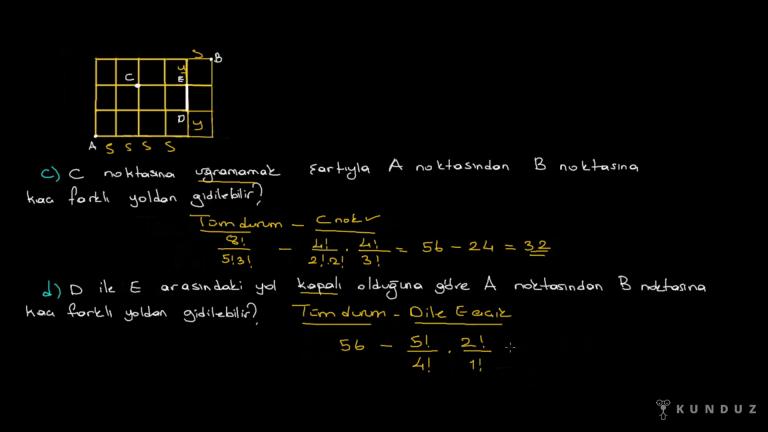 S
B
C
y
E
D
y
A S S S S
c) C noktasına uğramamak şartıyla A noktasından B noktasına
kaç farklı yoldan gidilebilir?
Tüm durum - C nok ✓
8!/5!3! - 4!/2!.2! . 4!/3! = 56 - 24 = 32
d) D ile E arasındaki yol kapalı olduğuna göre A noktasından B noktasına
kaç farklı yoldan gidilebilir? Tüm durum - D ile E açık
56 - 5!/4! . 2!/1!
KUNDUZ